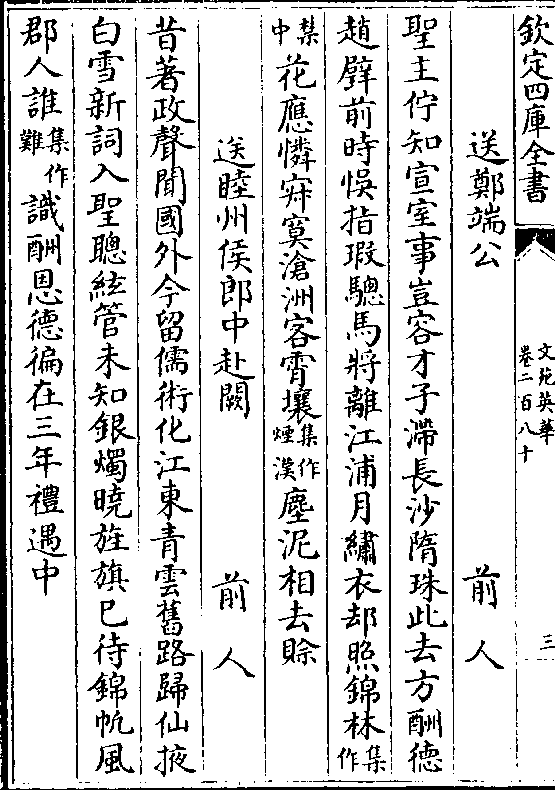 欽定四庫全書
文苑英華
卷二百八十
三
送鄭端公 前人
聖主佇知宣室事豈容才子滯長沙隋珠此去方酬德
趙璧前時悞指瑕驄馬將離江浦月繡衣却照錦林集作
禁中花應憐寂寞滄洲客霄壤集作煙漢塵泥相去賒
送睦州侯郎中赴闕 前人
昔著政聲聞國外今留儒術化江東青雲舊路歸仙掖
白雪新詞入聖聰絃管未知銀燭曉旌旗已待錦帆風
郡人誰集作難識酬恩德徧在三年禮遇中